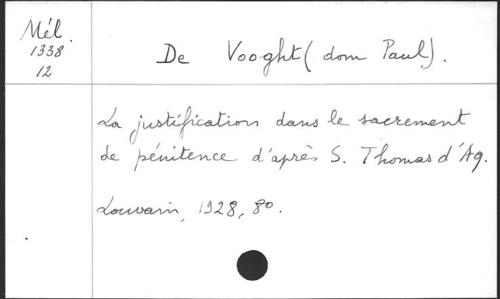 Mél.
1338
12
De Vooght (dom Paul).
La justification dans le sacrement
de pénitence d'après S. Thomas d'Aq.
Louvain, 1928, 8º.